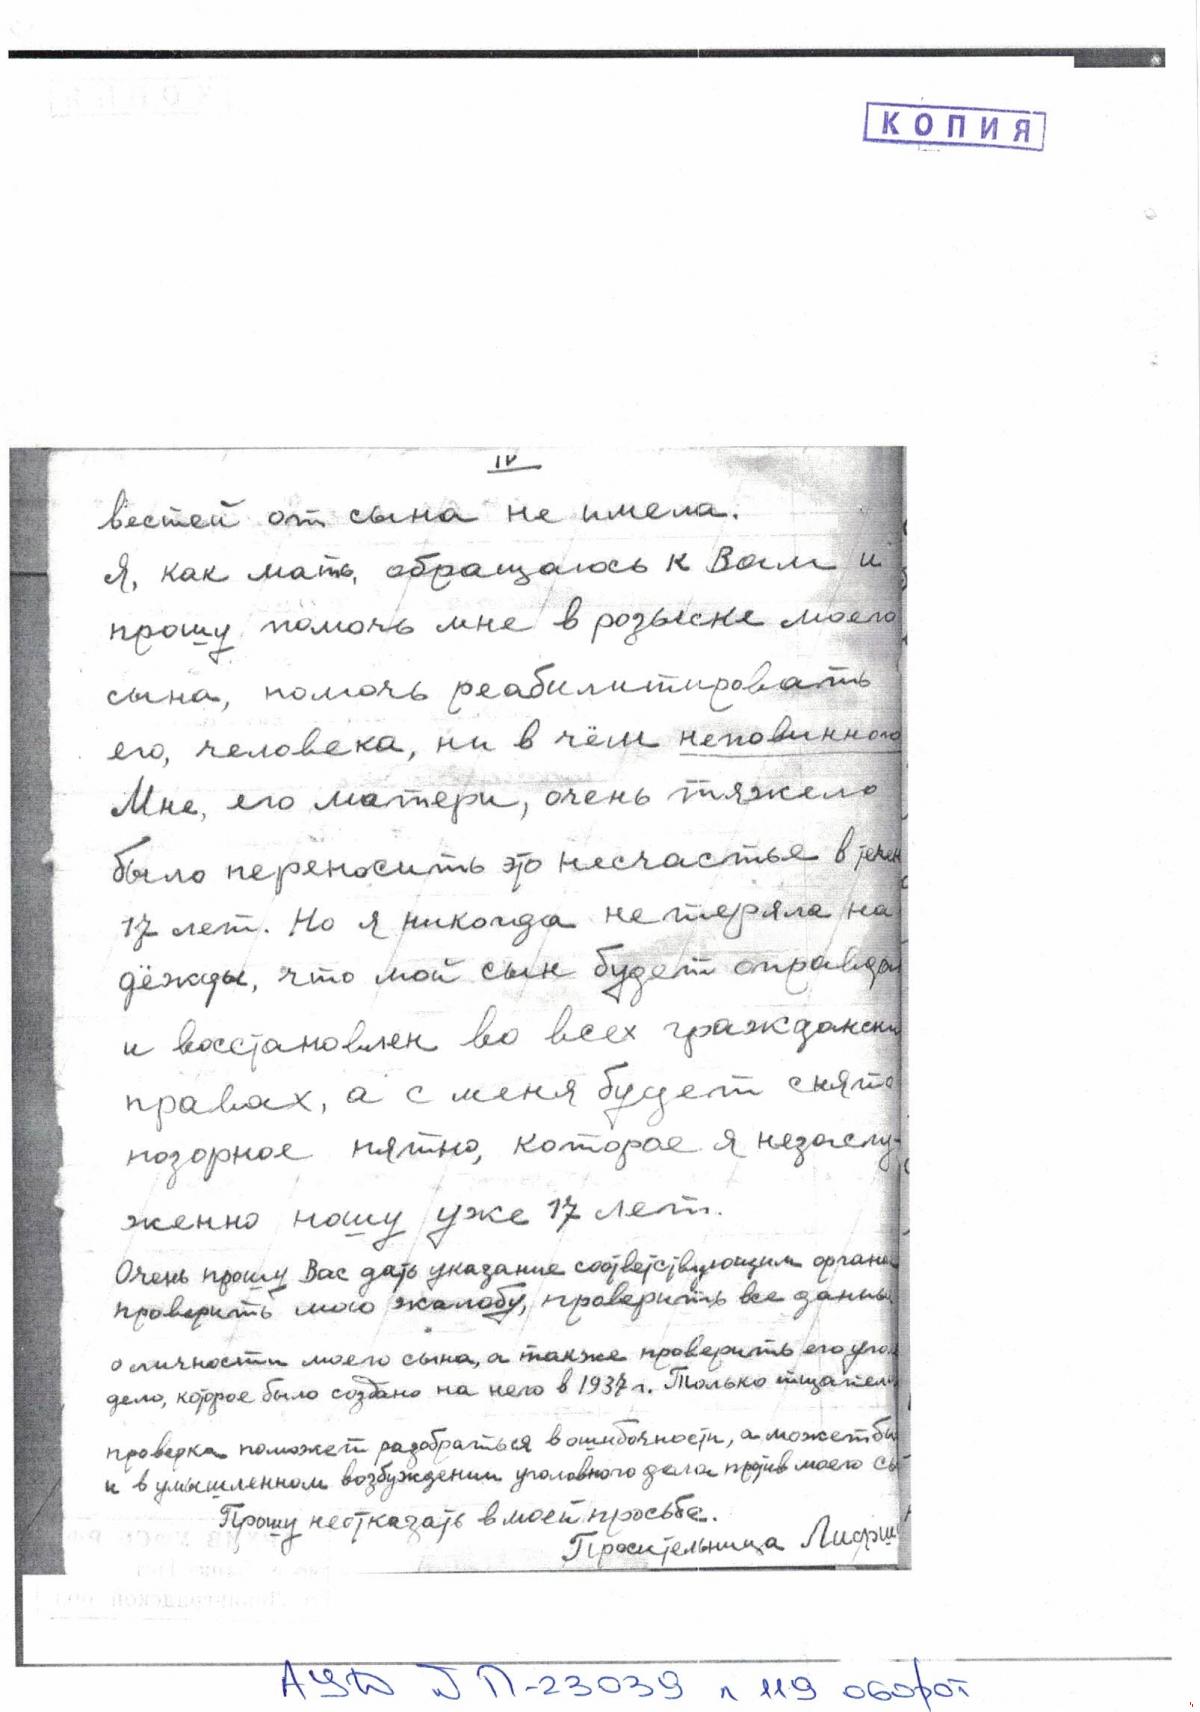 КОПИЯ
IV
вестей от сына не имела.
Я, как мать, обращаюсь к Вам и
прошу помочь мне в розыске моего
сына, помочь реабилитировать
его, человека, ни в чём неповинного
Мне, его матери, очень тяжело
было переносить это несчастье в течен
17 лет. Но я никогда не теряла на
дёжды, что мой сын будет оправдан
и восстановлен во всех граждански
правах, а с меня будет снято
позорное пятно, которое я незаслу-
женно ношу уже 17 лет.
Очень прошу Вас дать указание соответствующим органам
проверить мою жалобу, проверить все данные
о личности моего сына, а также проверить его угол
дело, которое было создано на него в 1937 г. Только тщательн
проверка поможет разобраться в ошибочности, а может бы
и в умышленном возбуждении уголовного дела против моего сы
Прошу не отказать в моей просьбе.
Просительница Лифш
АУД № П-23039 л 119 оборот